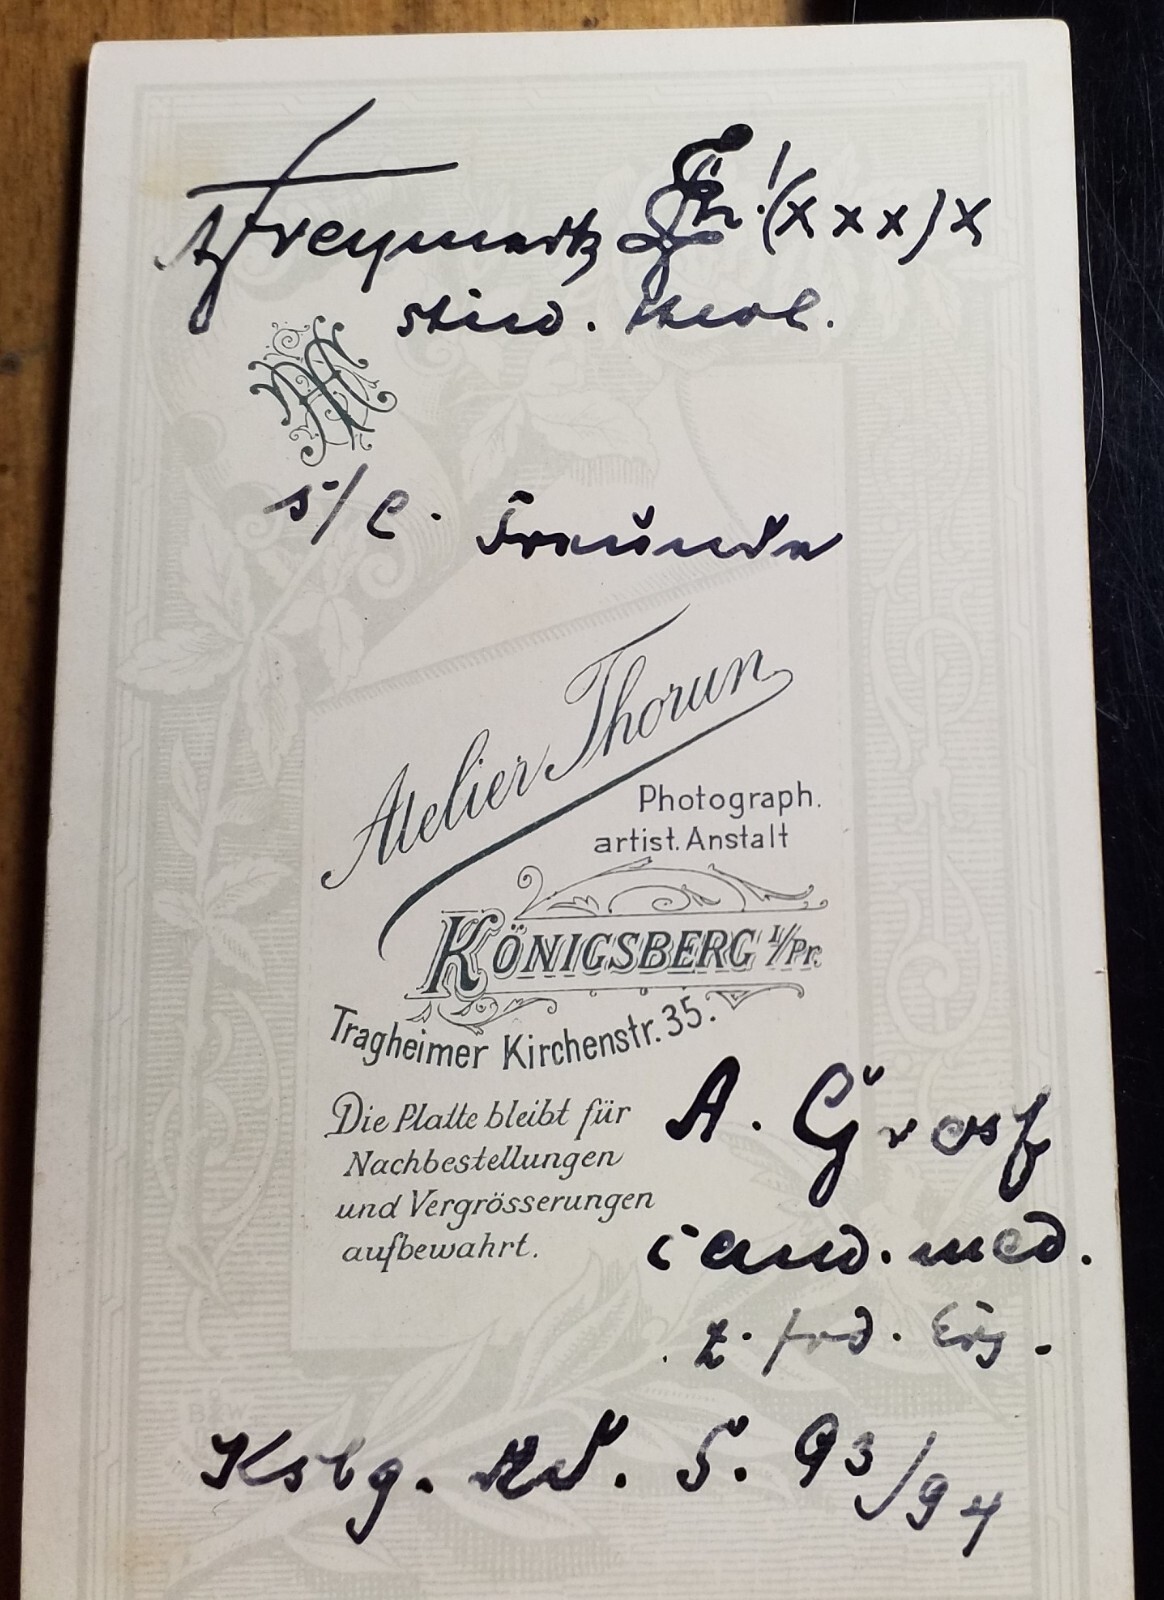 A Freymark (xxx) x
stud. theol.
s/l. Freunde
Atelier Thorun
Photograph.
artist. Anstalt
KÖNIGSBERG i/Pr.
Tragheimer Kirchenstr. 35.
Die Platte bleibt für
Nachbestellungen
und Vergrösserungen
aufbewahrt.
A.
cand. med.
z. frd. Erg.
Ksbg. S. 93/94
B&W.